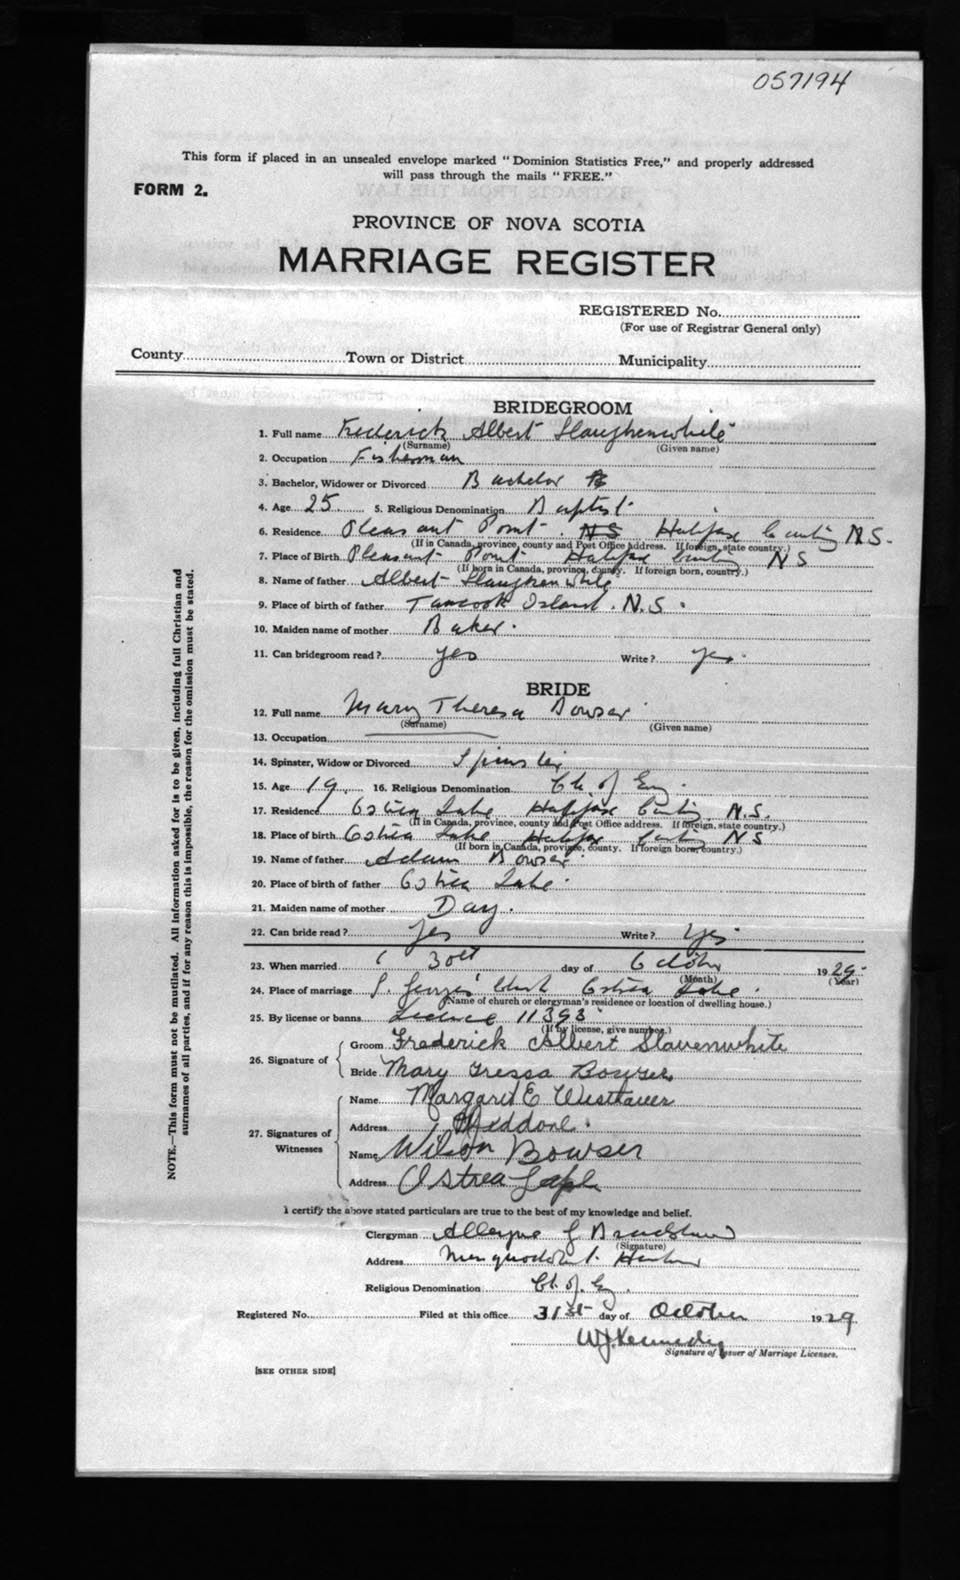 057194
This form if placed in an unsealed envelope marked "Dominion Statistics Free," and properly addressed
will pass through the mails "FREE."
FORM 2.
PROVINCE OF NOVA SCOTIA
MARRIAGE REGISTER
REGISTERED No.
(For use of Registrar General only)
County Town or District Municipality
BRIDEGROOM
1. Full name Frederick Albert Slaughenwhite
(Surname) (Given name)
2. Occupation Fisherman
3. Bachelor, Widower or Divorced Bachelor
4. Age 25 5. Religious Denomination Baptist
6. Residence Pleasant Point. NS Halifax County N.S.
(If in Canada, province, county and Post Office address. If foreign, state country.)
7. Place of Birth Pleasant Point Halifax County NS
(If born in Canada, province, county. If foreign born, country.)
8. Name of father Albert Slaughenwhite
9. Place of birth of father Tancook Island. N.S.
10. Maiden name of mother Baker.
11. Can bridegroom read? yes Write? yes.
BRIDE
12. Full name Mary Theresa Bowser
(Surname) (Given name)
13. Occupation
14. Spinster, Widow or Divorced Spinster
15. Age 19. 16. Religious Denomination Ch. of Eng.
17. Residence Ostrea Lake Halifax County N.S.
(If in Canada, province, county and Post Office address. If foreign, state country.)
18. Place of birth Ostrea Lake Halifax County NS
(If born in Canada, province, county. If foreign born, country.)
19. Name of father Adam Bowser
20. Place of birth of father Ostrea Lake.
21. Maiden name of mother Day.
22. Can bride read? Yes Write? Yes
23. When married 30th day of October 1929.
(Month) (Year)
24. Place of marriage S. Georges' Church Ostrea Lake.
(Name of church or clergyman's residence or location of dwelling house.)
25. By license or banns. License 11393
(If by license, give number.)
26. Signature of
Groom Frederick Albert Slavenwhite
Bride Mary Tressa Bowser
27. Signatures of Witnesses
Name Margaret E Westhaver
Address
Name Wilson Bowser
Address Ostrea
I certify the above stated particulars are true to the best of my knowledge and belief.
Clergyman Bradshaw
(Signature)
Address Musquodoboit Harbour
Religious Denomination Ch. of Eng.
Registered No. Filed at this office 31st day of October 1929
W.J. Kennedy
Signature of Issuer of Marriage Licenses.
[SEE OTHER SIDE]
NOTE.—This form must not be mutilated. All information asked for is to be given, including full Christian and
surnames of all parties, and if for any reason this is impossible, the reason for the omission must be stated.